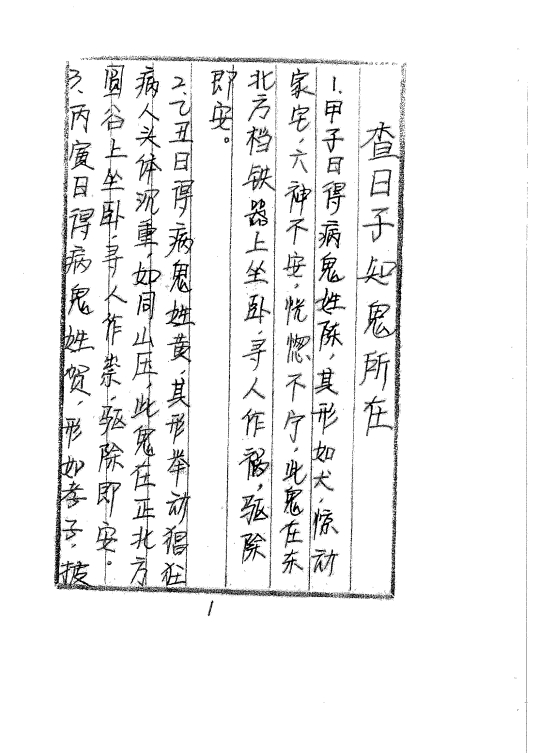 查日子知鬼所在
1.甲子日得病鬼姓陈,其形如犬,惊动
家宅,六神不安,恍惚不宁,此鬼在东
北方档铁器上坐卧,寻人作祸,驱除
即安。
2.乙丑日得病鬼姓黄,其形举动猖狂
病人头体沉重,如同山压,此鬼在正北方
圆谷上坐卧,寻人作祟,驱除即安。
3、丙寅日得病鬼姓贺,形如孝子,披
1